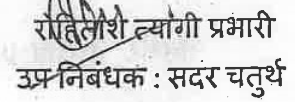 रोहिताशे त्यागी प्रभारी
उप निबंधक : सदर चतुर्थ